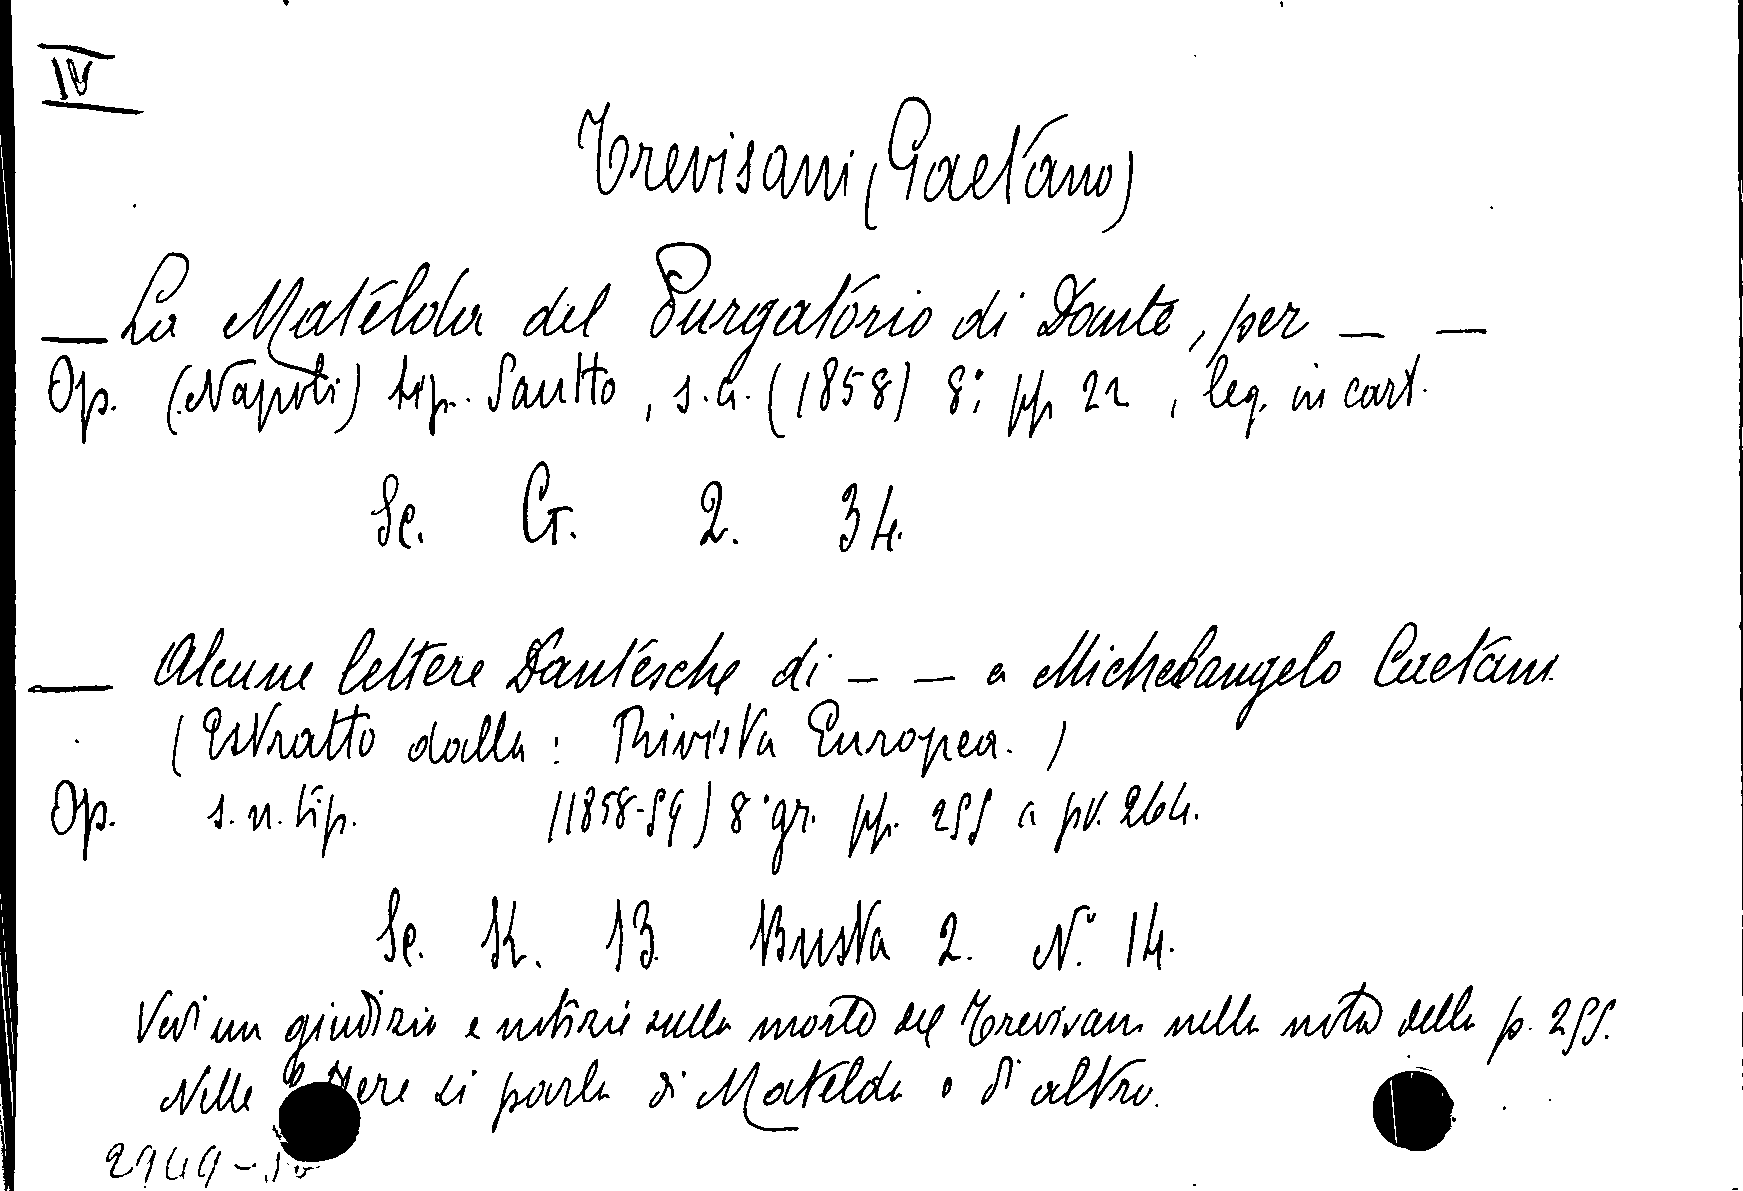 IV
Trevisani (Gaetano)
— La Matelda del Purgatorio di Dante, per — —
Op. (Napoli) tip. Sautto, s.a. (1858) 8° pp. 22, leg. in cart.
Se. G. 2. 34.
— Alcune lettere Dantesche di — — a Michelangelo Caetani
(Estratto dalla: Rivista Europea.)
Op. s.n. tip. (1858-59) 8° gr. pp. 255 a pp. 264.
Se. K. 13 Busta 2. N° 14.
Vedi un giudizio e notizie sulla morte del Trevisani nella nota della p. 255.
Nelle lettere si parla di Matelda e di altro.